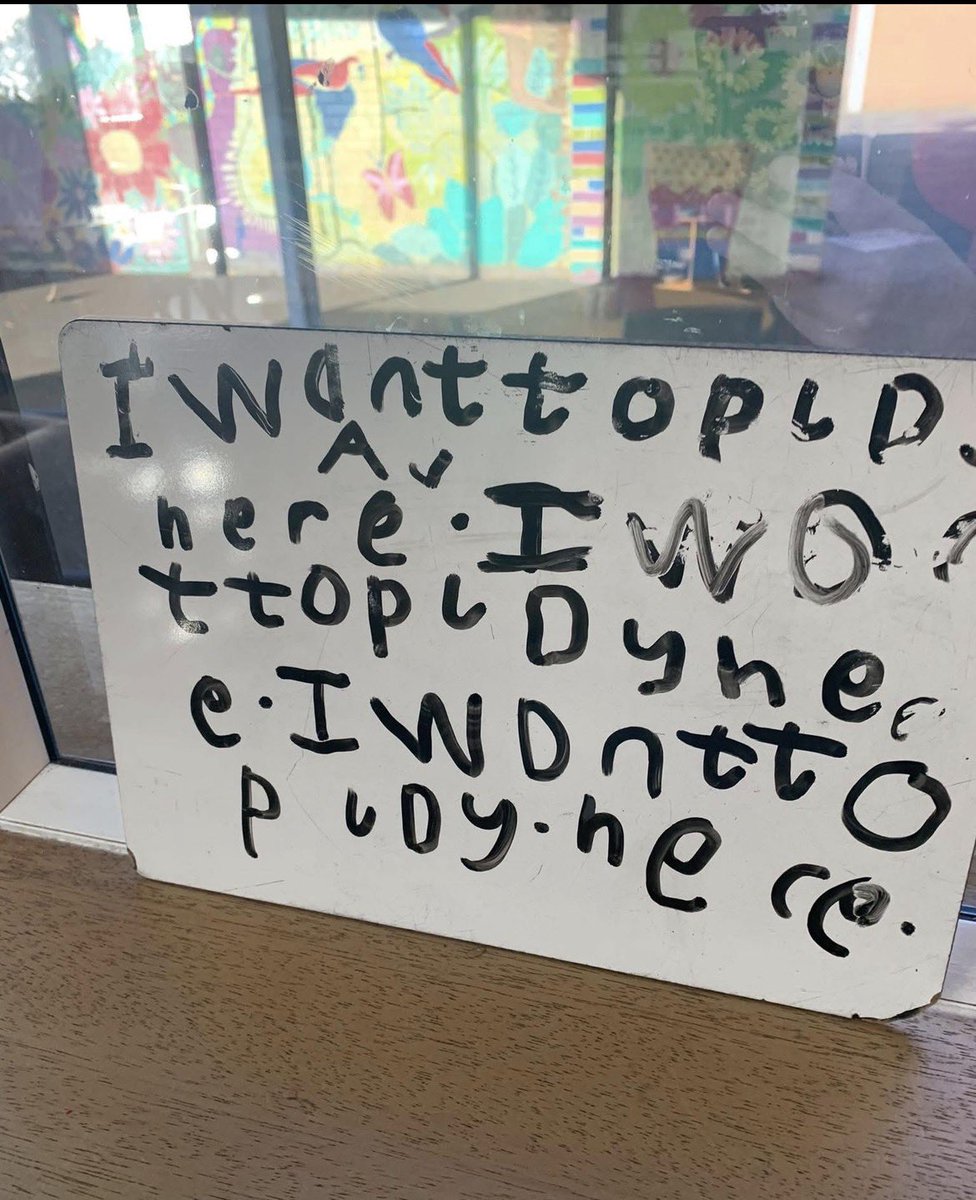 I Wanttopla
Av
here. I WO
ttoplDyhe
e. I WDnttO
pldDy. here.